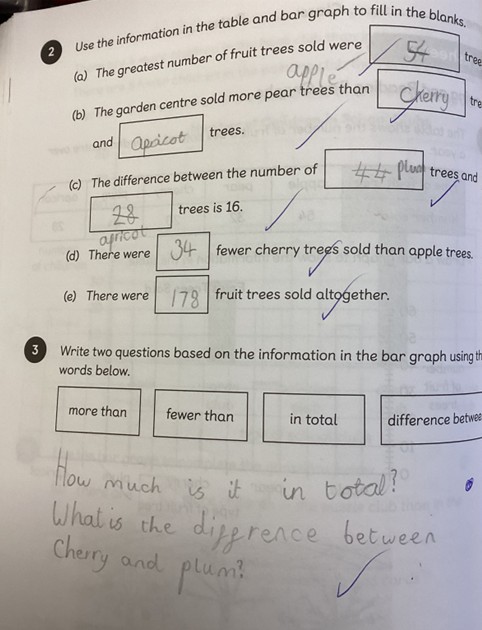 2 Use the information in the table and bar graph to fill in the blanks.
(a) The greatest number of fruit trees sold were 54 tree
apple
(b) The garden centre sold more pear trees than Cherry tre
and apricot trees.
(c) The difference between the number of 44 plum trees and
28 trees is 16.
apricot
(d) There were 34 fewer cherry trees sold than apple trees.
(e) There were 178 fruit trees sold altogether.
3 Write two questions based on the information in the bar graph using th
words below.
more than fewer than in total difference betwee
How much is it in total?
What is the diffrence between
Cherry and plum?